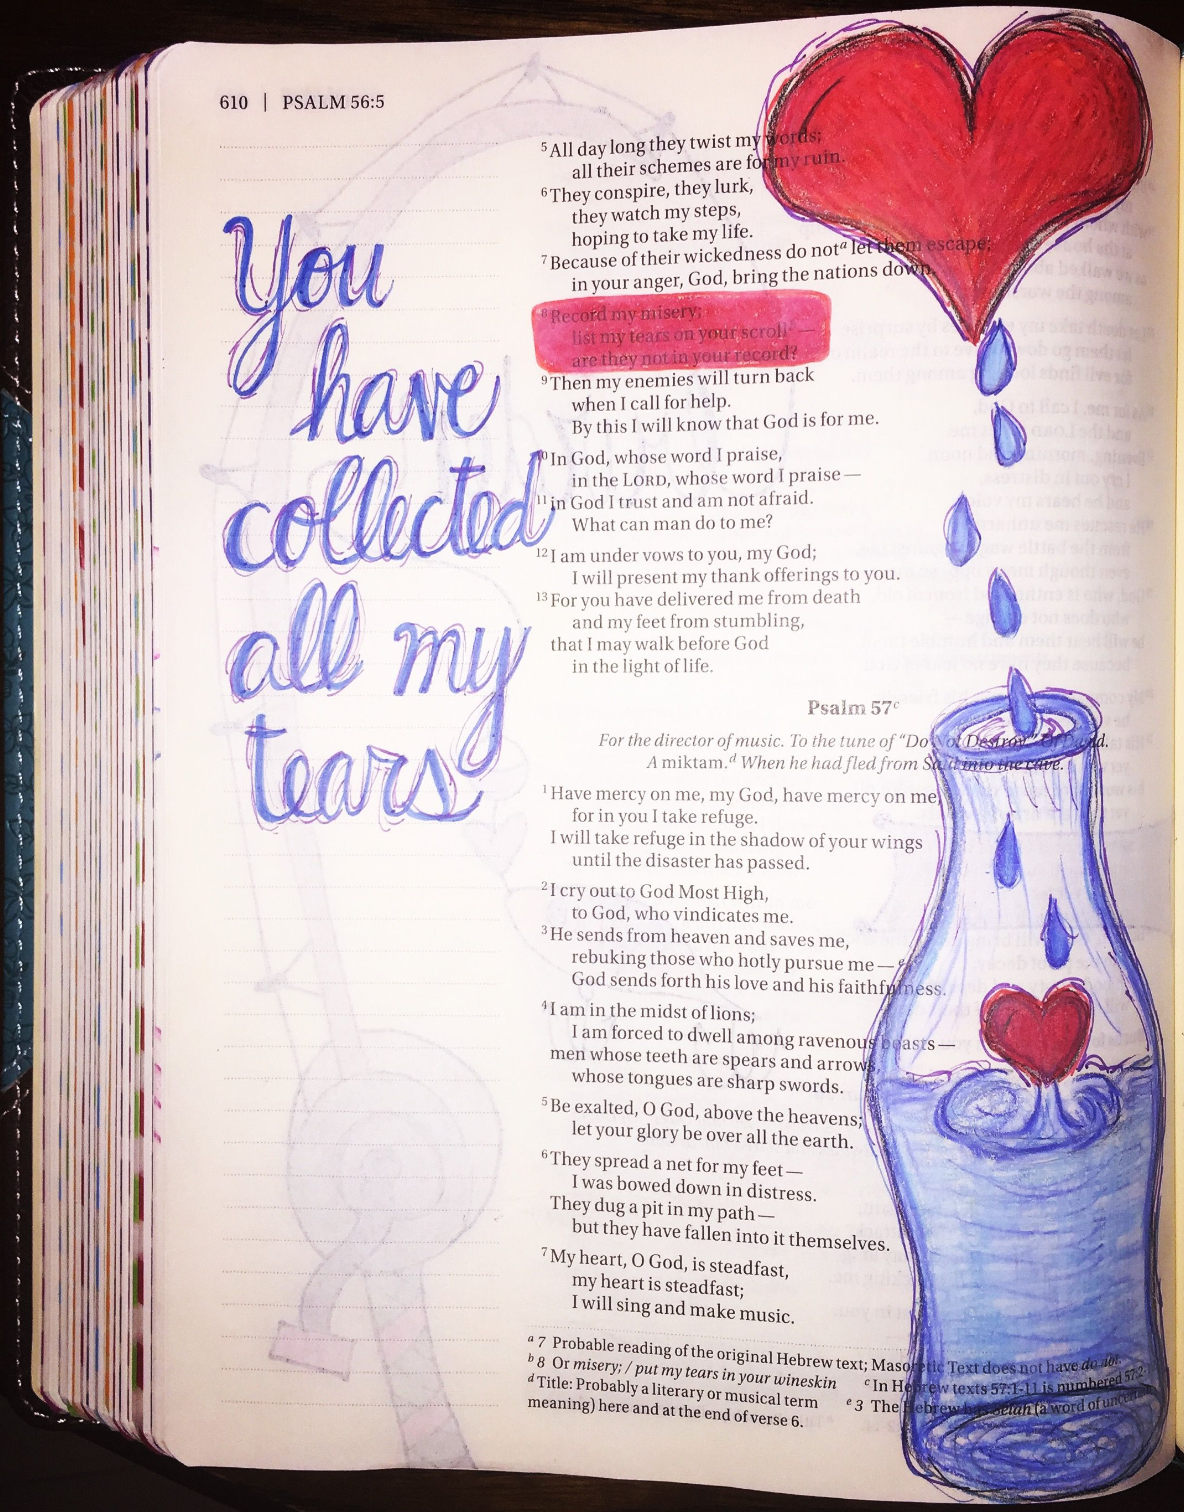 610 | PSALM 56:5
You
have
collected
all my
tears
5 All day long they twist my words;
all their schemes are for my ruin.
6 They conspire, they lurk,
they watch my steps,
hoping to take my life.
7 Because of their wickedness do not a let them escape;
in your anger, God, bring the nations down.
8 Record my misery;
list my tears on your scroll b —
are they not in your record?
9 Then my enemies will turn back
when I call for help.
By this I will know that God is for me.
10 In God, whose word I praise,
in the LORD, whose word I praise—
11 in God I trust and am not afraid.
What can man do to me?
12 I am under vows to you, my God;
I will present my thank offerings to you.
13 For you have delivered me from death
and my feet from stumbling,
that I may walk before God
in the light of life.
Psalm 57 c
For the director of music. To the tune of “Do Not Destroy.” Of David.
A miktam. d When he had fled from Saul into the cave.
1 Have mercy on me, my God, have mercy on me,
for in you I take refuge.
I will take refuge in the shadow of your wings
until the disaster has passed.
2 I cry out to God Most High,
to God, who vindicates me.
3 He sends from heaven and saves me,
rebuking those who hotly pursue me— e
God sends forth his love and his faithfulness.
4 I am in the midst of lions;
I am forced to dwell among ravenous beasts—
men whose teeth are spears and arrows,
whose tongues are sharp swords.
5 Be exalted, O God, above the heavens;
let your glory be over all the earth.
6 They spread a net for my feet—
I was bowed down in distress.
They dug a pit in my path—
but they have fallen into it themselves.
7 My heart, O God, is steadfast,
my heart is steadfast;
I will sing and make music.
a 7 Probable reading of the original Hebrew text; Masoretic Text does not have do not.
b 8 Or misery; / put my tears in your wineskin c In Hebrew texts 57:1-11 is numbered 57:2-
d Title: Probably a literary or musical term e 3 The Hebrew has Selah (a word of uncertain
meaning) here and at the end of verse 6.